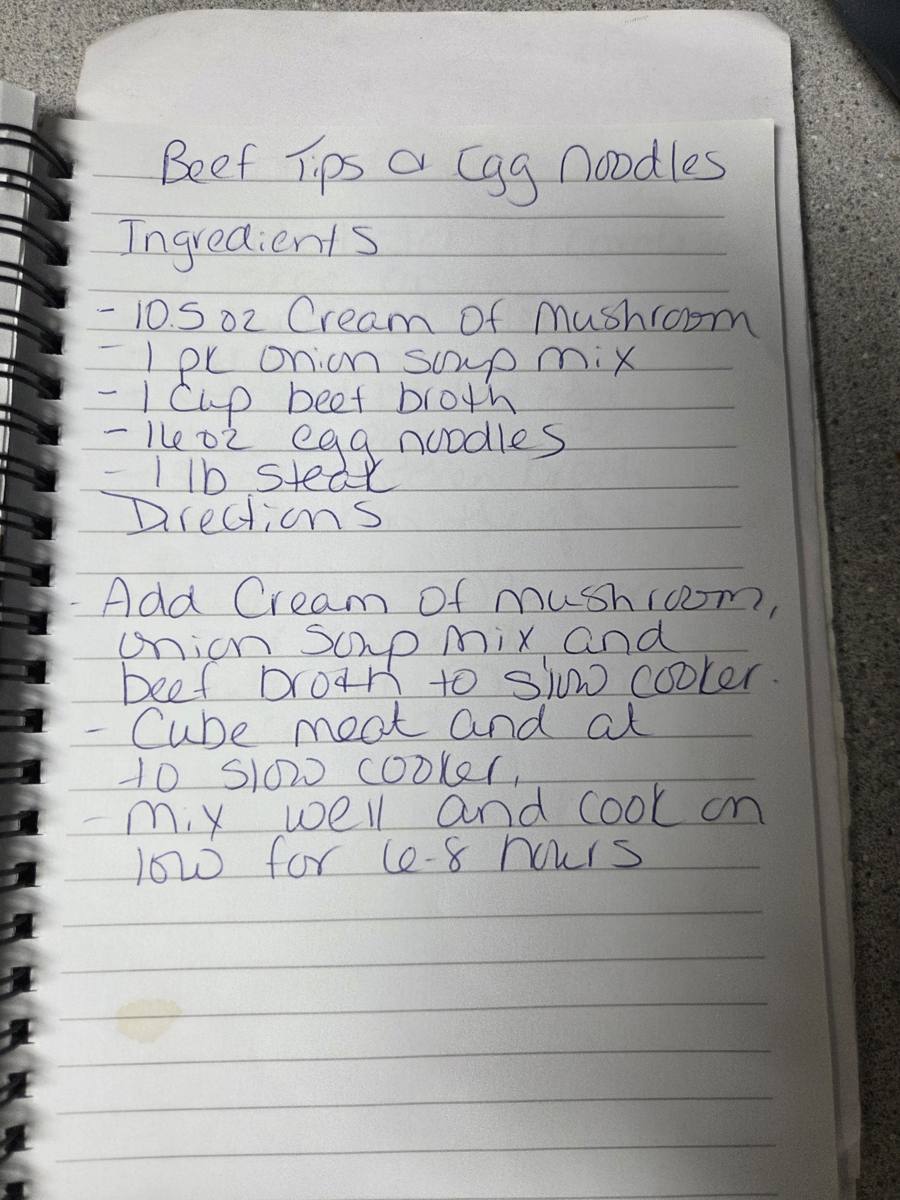 Beef Tips & Egg Noodles
Ingredients
- 10.5 oz Cream Of Mushroom
- 1 pk onion soup mix
- 1 Cup beef broth
- 16 oz egg noodles
- 1 lb steak
Directions
- Add Cream Of mushroom,
onion soup mix and
beef broth to slow cooker.
- Cube meat and at
to slow cooker,
- mix well and cook on
low for 6-8 hours